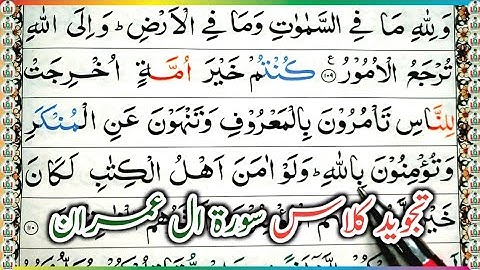 وَلِلّٰهِ مَا فِي السَّمٰوٰتِ وَمَا فِي الْاَرْضِ ؕ وَاِلَى اللّٰهِ
تُرْجَعُ الْاُمُوْرُ ﴿۱۰۹﴾ ع كُنْتُمْ خَيْرَ اُمَّةٍ اُخْرِجَتْ
لِلنَّاسِ تَاْمُرُوْنَ بِالْمَعْرُوْفِ وَتَنْهَوْنَ عَنِ الْمُنْكَرِ
وَتُؤْمِنُوْنَ بِاللّٰهِ ؕ وَلَوْ اٰمَنَ اَهْلُ الْكِتٰبِ لَكَانَ
خَيْرًا
تجوید کلاس سورۃ ال عمران